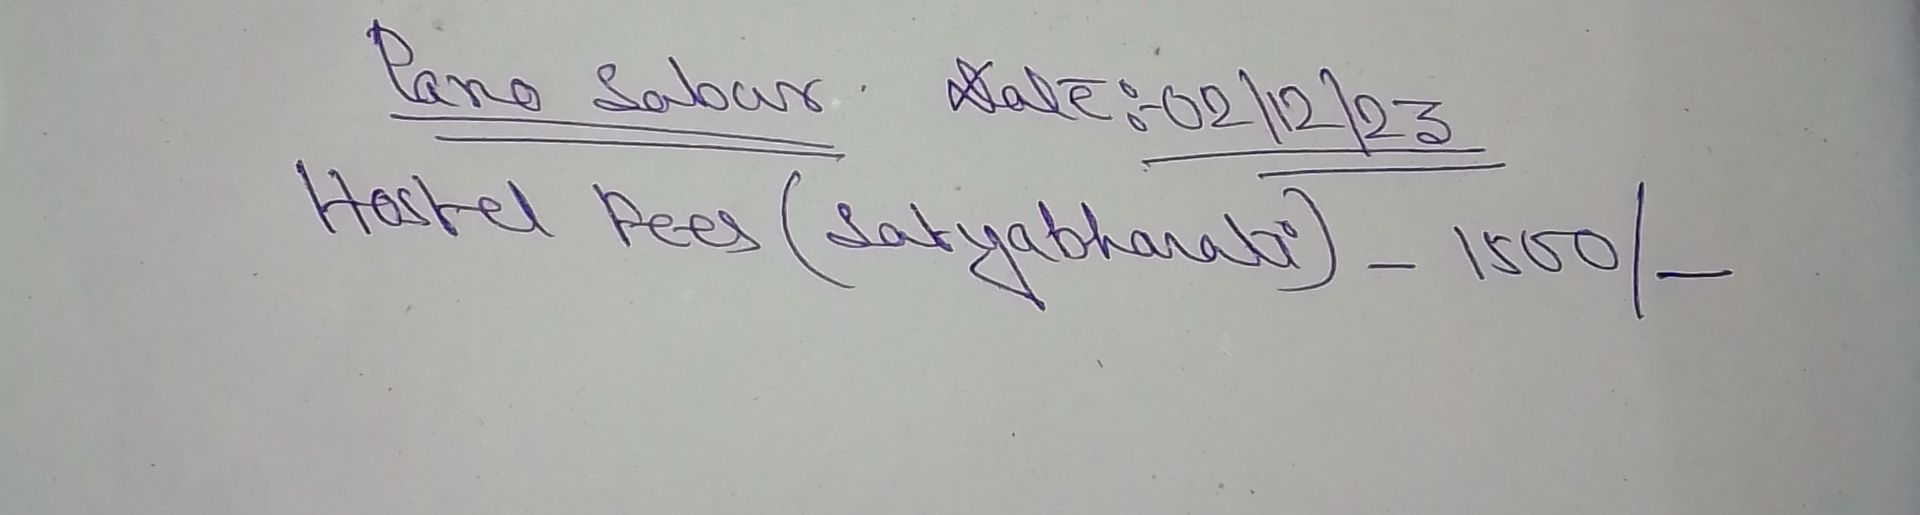 Pano Sabar. Date:-02/12/23
Hostel Fees (Satyabharati) - 1500/-